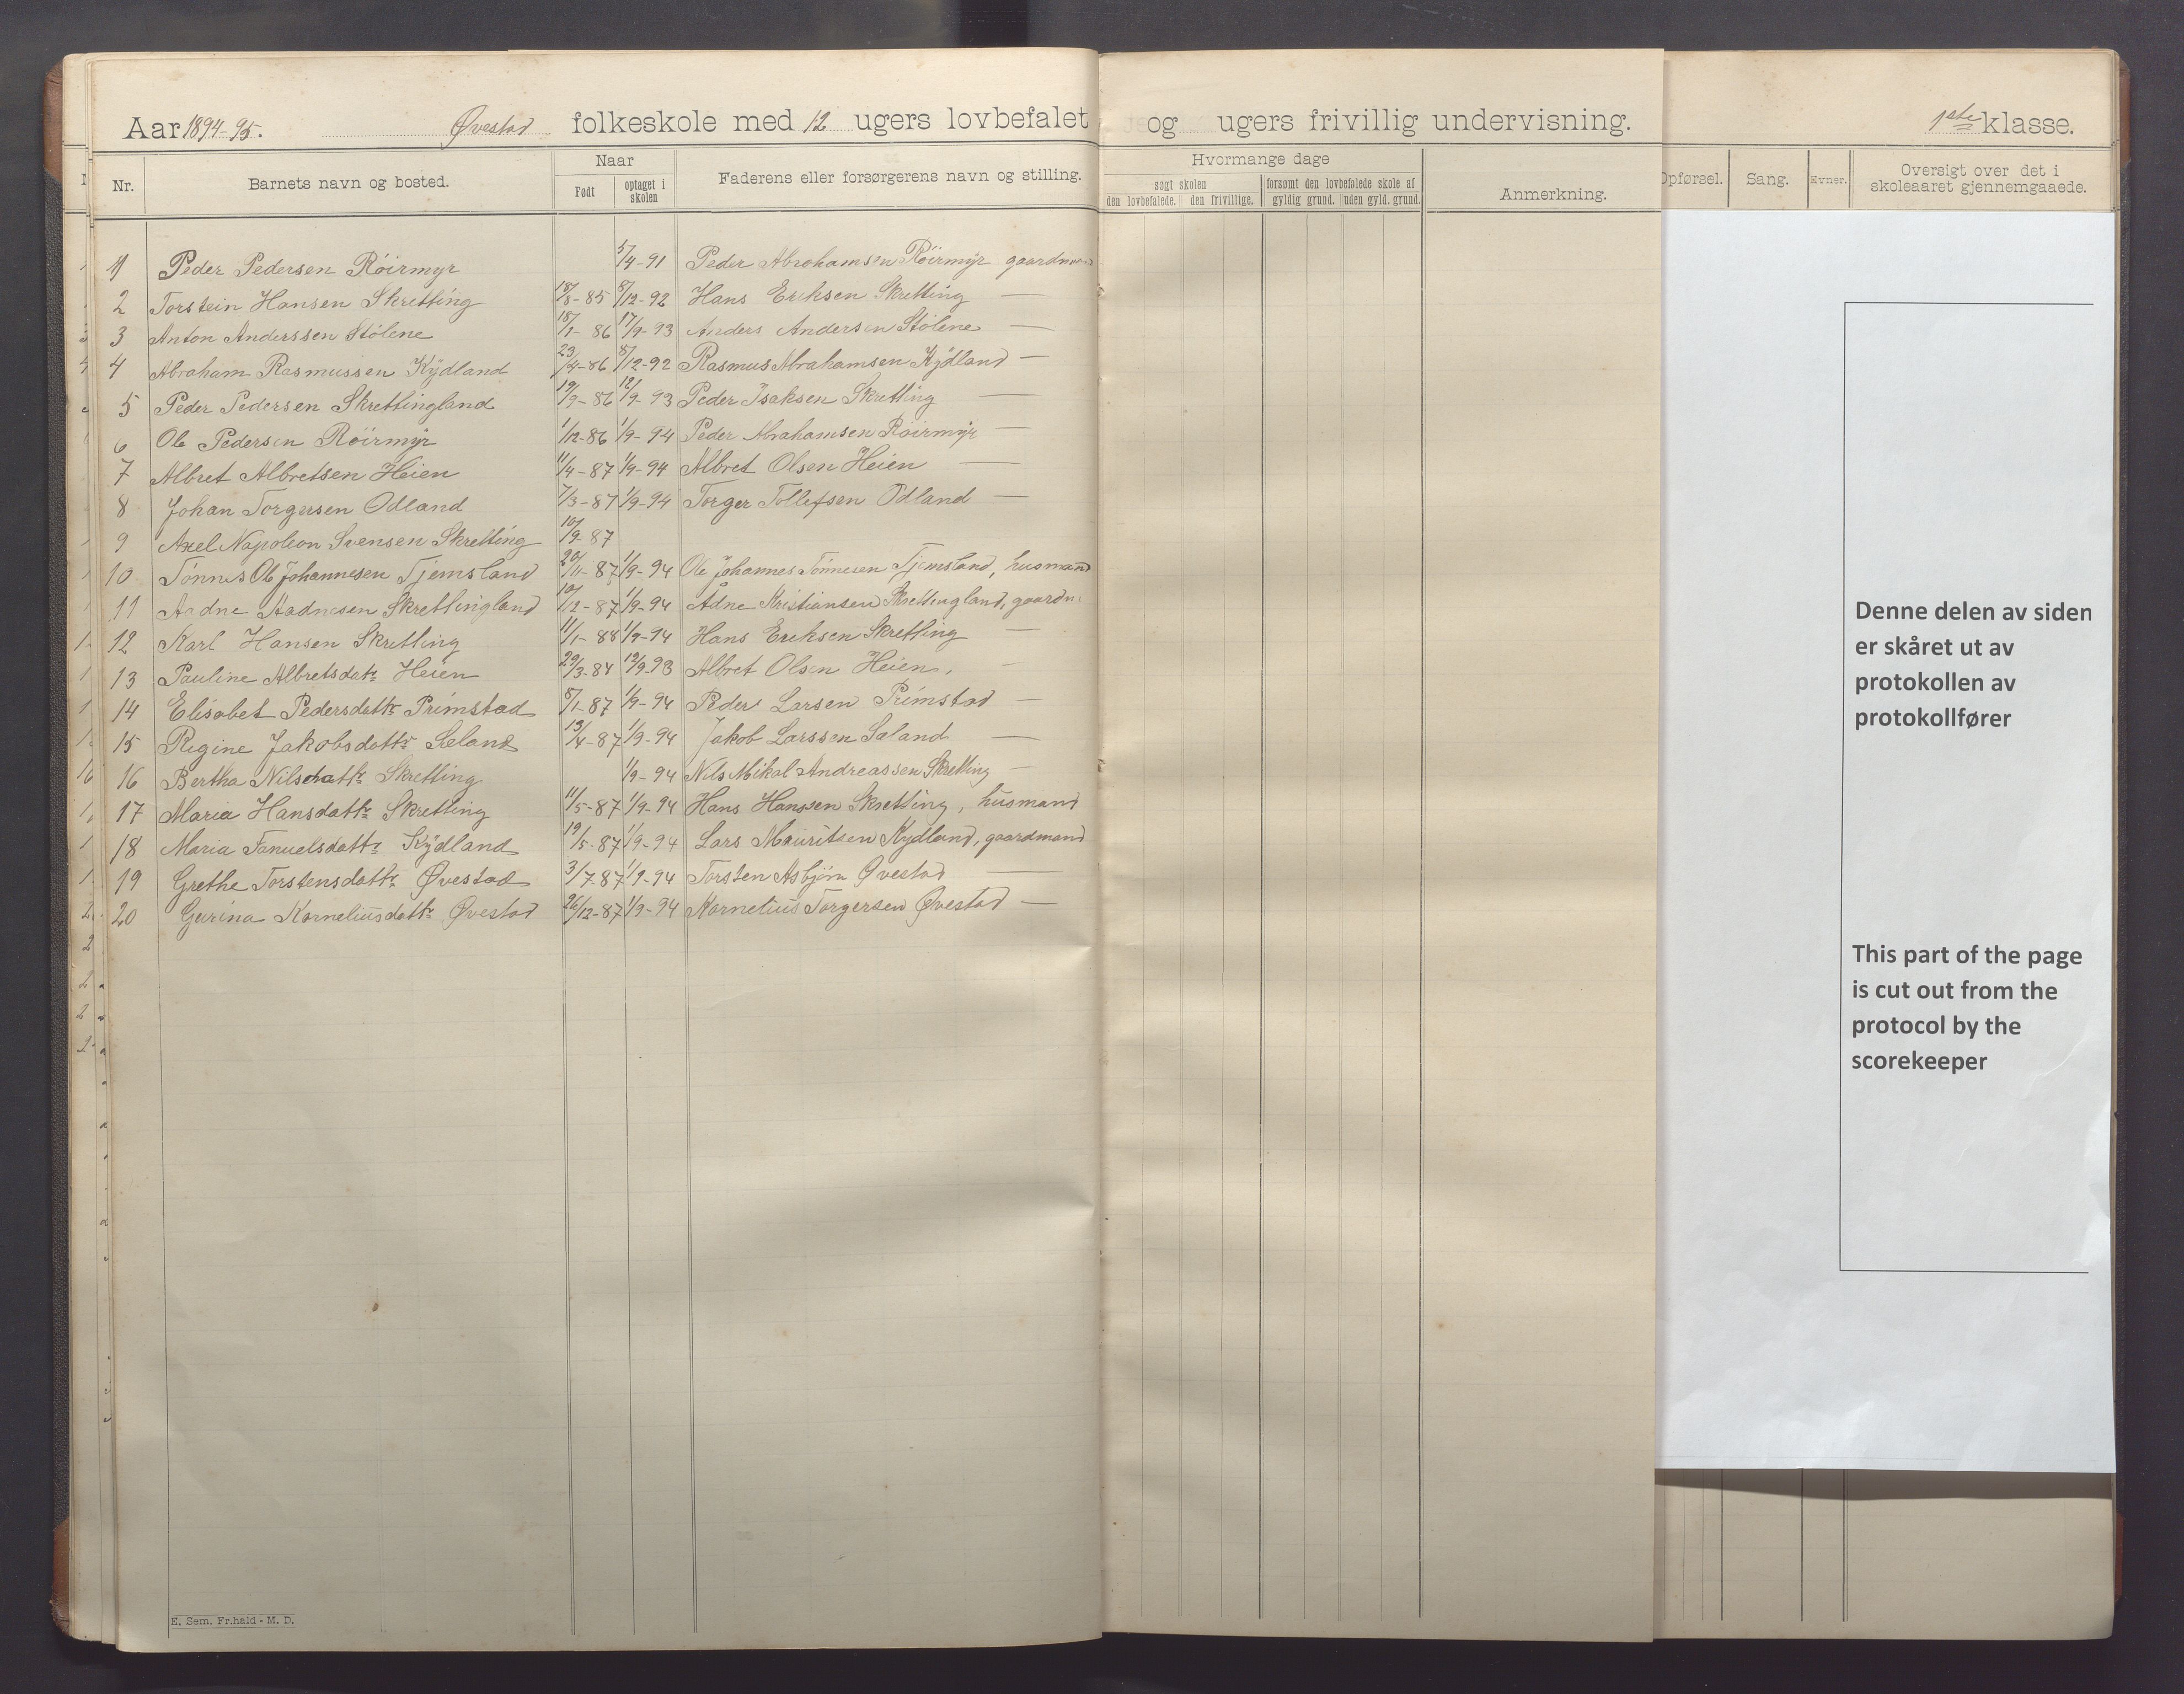 Aar 1894-95. Øvestad folkeskole med 12 ugers lovbefalet og ugers frivillig undervisning. 1ste klasse.
Nr. Barnets navn og bosted. Naar Født optaget i skolen Faderens eller forsørgerens navn og stilling. Hvormange dage søgt skolen den lovbefalede. den frivillige. forsømt den lovbefalede skole af gyldig grund. uden gyld. grund. Anmerkning. Opførsel. Sang. Evner. Oversigt over det i skoleaaret gjennemgaaede.
1 Peder Pedersen Röirmyr 5/4-91 Peder Abrahamsen Röirmyr
2 Torstein Hansen Skretting 18/8-85 8/12-92 Hans Eriksen Skretting —
3 Anton Anderssen Stölene 18/1-86 17/9-93 Anders Andersen Stölene —
4 Abraham Rasmussen Kydland 23/4-86 8/12-92 Rasmus Abrahamsen Kydland —
5 Peder Pedersen Skrettingland 19/9-86 12/9-93 Peder Isaksen Skretting —
6 Ole Pedersen Röirmyr 1/12-86 1/9-94 Peder Abrahamsen Röirmyr —
7 Albret Albretsen Heien 11/4-87 1/9-94 Albret Olsen Heien —
8 Johan Torgersen Odland 7/3-87 1/9-94 Torger Tollefsen Odland —
9 Axel Napoleon Svensen Skretting 10/9-87
10 Tönnes Ole Johannesen Tjemsland 20/11-87 1/9-94 Ole Johannes Tönnesen Tjemsland, husmand
11 Aadne Aadnesen Skrettingland 10/12-87 1/9-94 Ådne Kristiansen Skrettingland,
12 Karl Hansen Skretting 11/1-88 1/9-94 Hans Eriksen Skretting —
13 Pauline Albretsdatr Heien 29/3-84 19/9-93 Albret Olsen Heien, —
14 Elisabet Pedersdattr Primstad 8/1-87 1/9-94 Peder Larsen Primstad —
15 Regine Jakobsdattr Sæland 13/4-87 1/9-94 Jakob Larssen Saland —
16 Bertha Nilsdattr Skretting 1/9-94 Nils Mikal Andreassen Skretting —
17 Maria Hansdattr Skretting 11/5-87 1/9-94 Hans Hanssen Skretting, husmand
18 Maria Tanuelsdattr Kydland 19/5-87 1/9-94 Lars Mauritsen Kydland, gaardmand
19 Grethe Torstensdattr Øvestad 3/7-87 1/9-94 Torsten Asbjörn Øvestad —
20 Gurina Korneliusdattr Øvestad 26/12-87 1/9-94 Kornelius Torgersen Øvestad —
E. Sem. Fr.hald - M. D.
Denne delen av siden
er skåret ut av
protokollen av
protokollfører
This part of the page
is cut out from the
protocol by the
scorekeeper